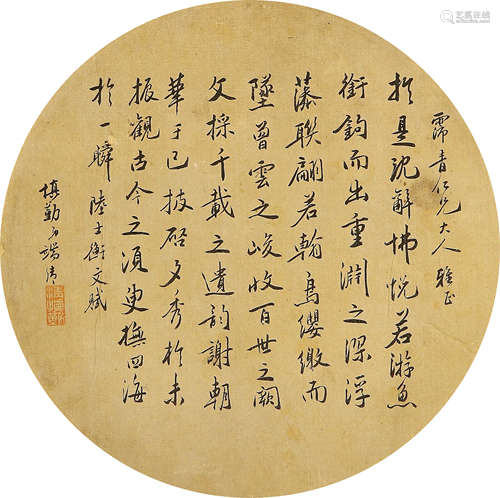 霈青仁兄大人雅正
於是沈辭怫悅若游魚
銜鉤而出重淵之深浮
藻聯翩若翰鳥纓繳而
墜曾雲之峻收百世之闕
文採千載之遺韵謝朝
華于已披啓夕秀於未
振觀古今之須臾撫四海
於一瞬 陸士衡文賦
慎勤弟端清